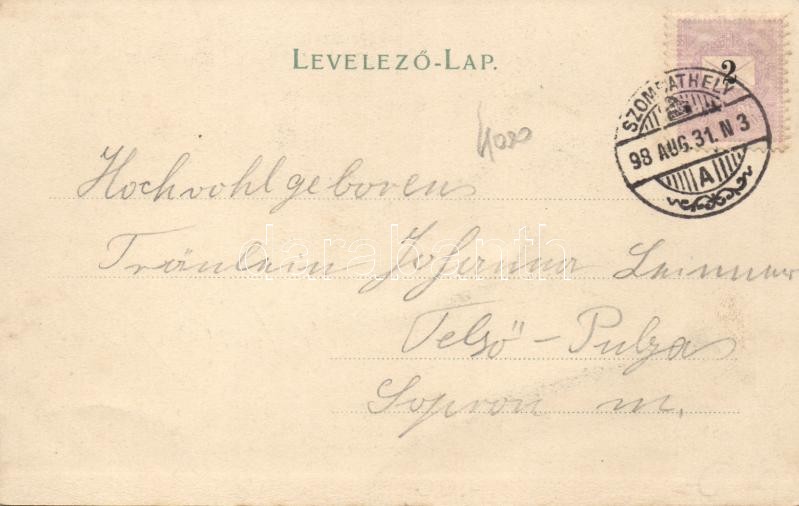 LEVELEZŐ-LAP.
2
SZOMBATHELY
98 AUG. 31. N 3
A
Hochwohlgeboren
Fräulein Johanna Leinner
Felső-Pulya
Sopron m.
darabanth